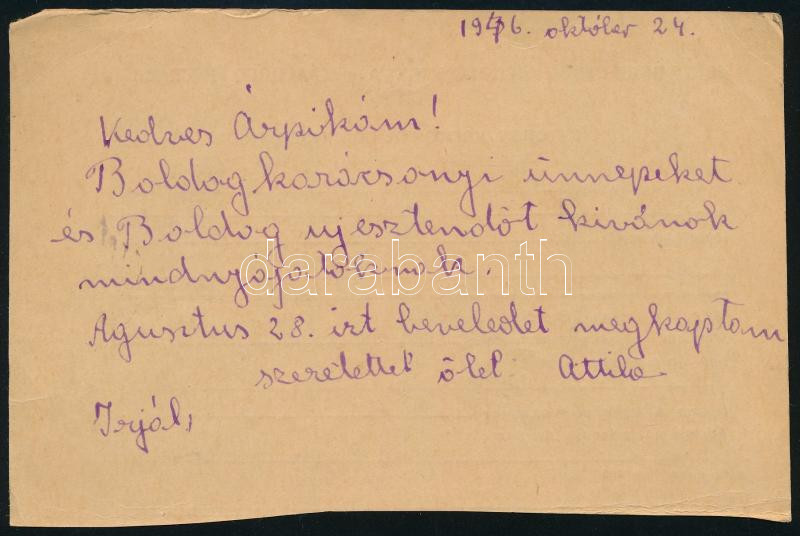 1946. október 24.
Kedves Árpikám!
Boldog karácsonyi ünnepeket
és Boldog ujesztendőt kivánok
mindnyájatoknak.
Agusztus 28. irt leveledet megkaptam
szeretettel ölel Attila
Irjál,
darabanth